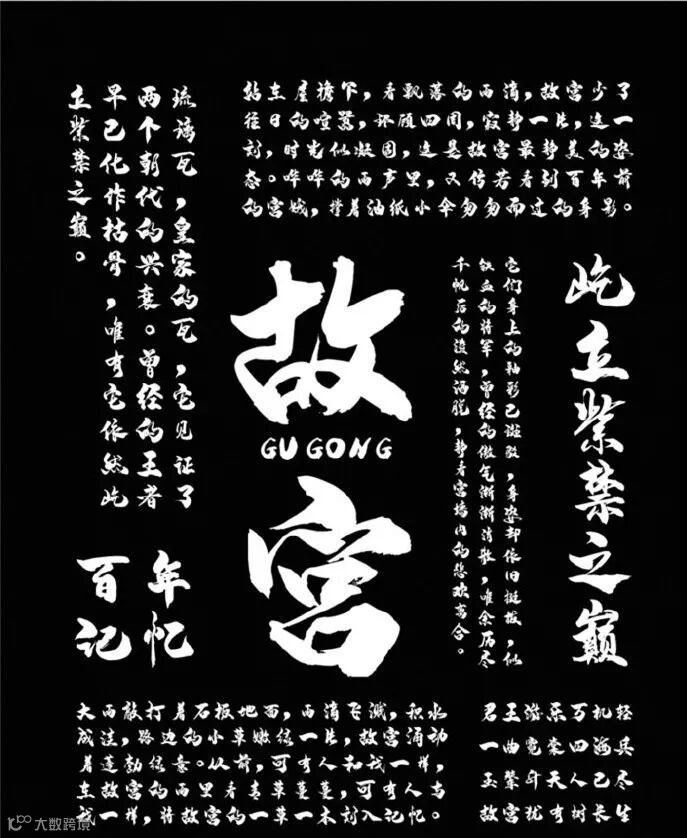 琉璃瓦，皇家的瓦，它见证了
两个朝代的兴衰。曾经的王者
早已化作枯骨，唯有它依然屹
立紫禁之巅。
站在屋檐下，看飘落的雨滴，故宫少了
往日的喧嚣，环顾四周，寂静一片，这一
刻，时光似凝固，这是故宫最静美的姿
态。哗哗的雨声里，又仿若看到百年前
的宫娥，撑着油纸小伞匆匆而过的身影。
故
GU GONG
宫
屹立紫禁之巅
它们身上的釉彩已斑驳，身姿却依旧挺拔，似
饮血的将军，曾经的傲气渐渐消散，唯余历尽
千帆后的淡然洒脱，静看宫墙内的悲欢离合。
百年
记忆
大雨敲打着石板地面，雨滴飞溅，积水
成洼，路边的小草嫩绿一片，故宫涌动
着蓬勃绿意。从前，可有人和我一样，
在故宫的雨里看青草蔓蔓，可有人与
我一样，将故宫的一草一木刻入记忆。
君王游乐万机轻
一曲霓裳四海兵
玉辇升天人已尽
故宫犹有树长生
大数跨境